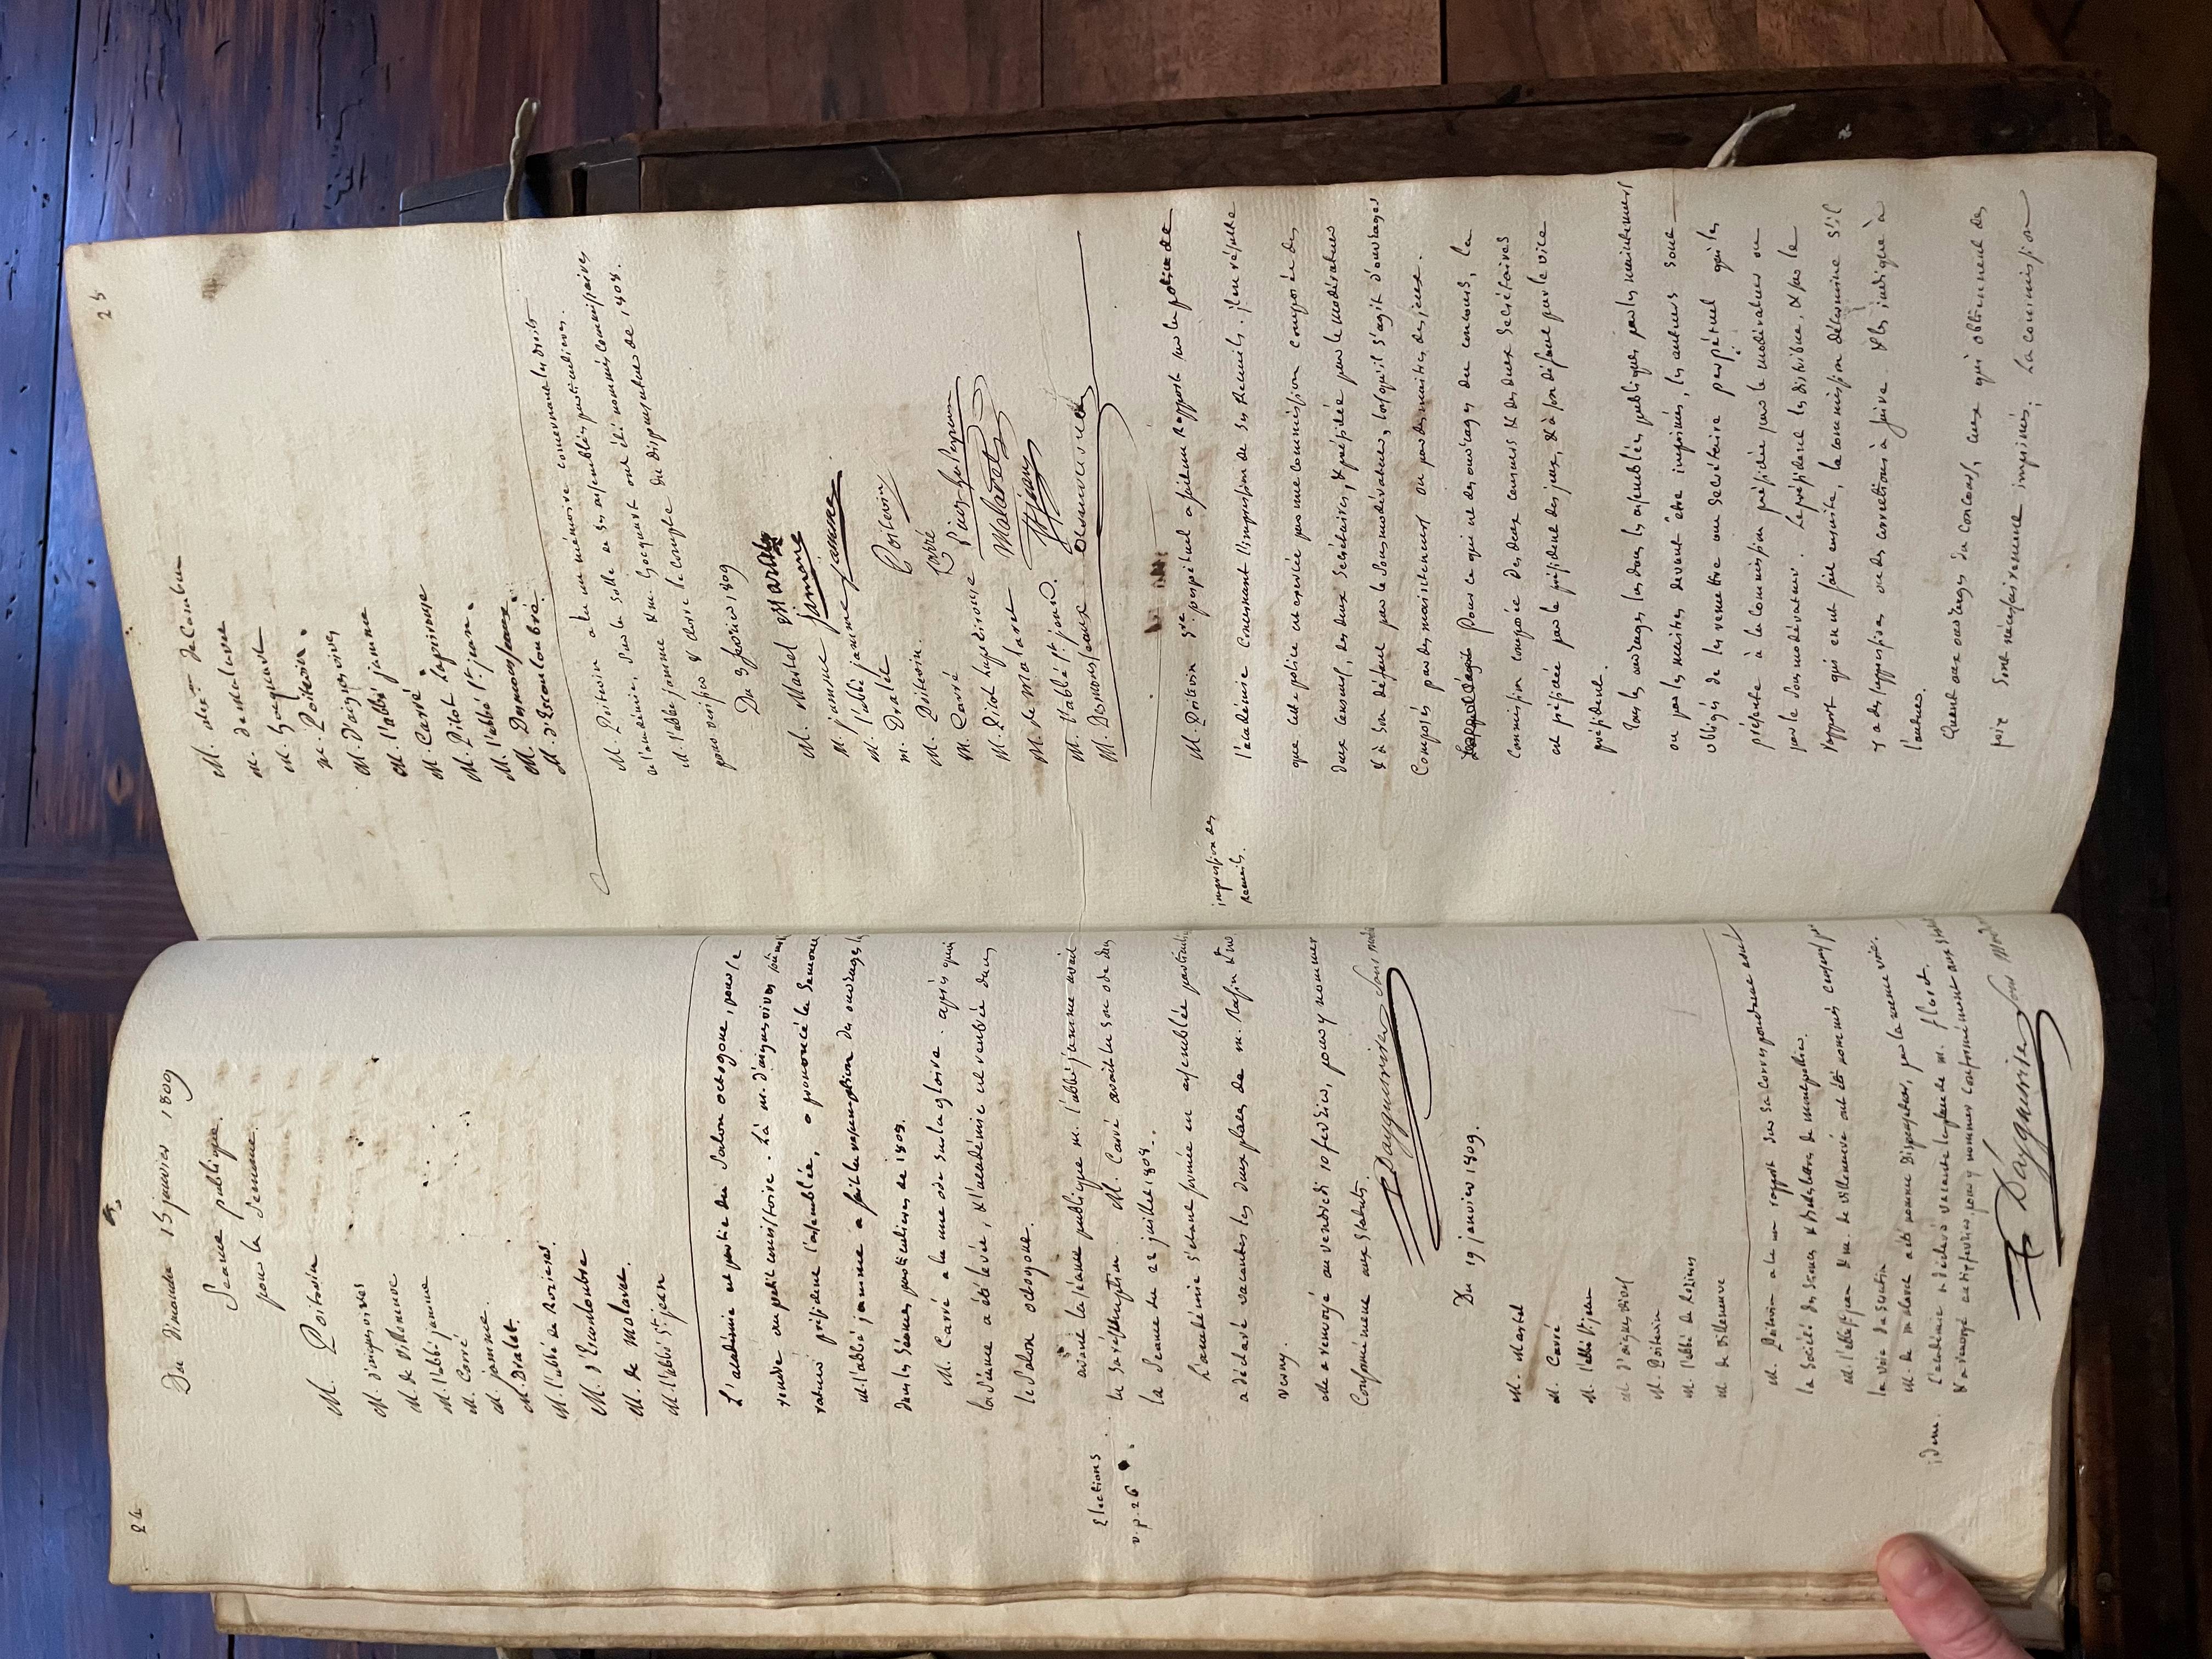 24
Du dimanche 15 janvier 1809
Seance publique.
pour la semonce.
M. Poitevin
M. d'aiguesvives
M. de Villeneuve
M. l'abbé jamme
M. Carré
M. jamme.
M. Dralet.
M. l'abbé de Rozieres.
M. d'Escouloubre
M. de Malaret.
M. l'abbé St jean
L'académie est partie du salon octogone, pour se
rendre au petit consistoire. Là m. d'aiguesvives
président l'assemblée, a prononcé la semonce
M. l'abbé jamme a fait la des ouvrages
dans les séances particulieres de 1808.
M. Carré a lu une ode sur la gloire. après quoi
la séance a été levée, & l'académie est rentrée dans
le salon octogone.
Elections
v. p. 26
avant la séance publique m. l'abbé jamme avait
lu sa M. Carré avait lu son ode dans
la séance du 22 juillet 1808.
L'académie s'étant formée en assemblée
a déclaré vacantes les deux places de m.
elle a renvoyé au vendredi 10 fevrier, pour y nommer
Conformément aux statuts.
D'ayguesvives sous
Du 19 janvier 1809.
M. Martel
M. Carré
M. l'abbé St jean
M. d'aiguesvives
M. Poitevin
M. l'abbé de Rozieres
M. de Villeneuve
M. Poitevin a lu un rapport sur sa correspondance avec
la société des sciences & belles lettres de montpellier.
M. l'abbé St jean & m. de Villeneuve ont été nommés
la voie du scrutin
M. de malaret a été nommé Dispensateur, par la meme voie.
idem.
L'académie a déclaré vacante la place de m. floret.
& a renvoyé au pour y nommer conformément aux
D'ayguesvives sous
25
M. de Cambon
M. de malaret
M. Gocquart
M. Poitevin
M. D'aiguesvives
M. l'abbé jamme
M. Carré
M. Pilot Lapeirouse
M. l'abbé St jean.
M. d'Escouloubre.
M. Poitevin a lu un mémoire concernant les droits
de l'académie, sur la salle de ses assemblées particulieres.
M. l'abbé jamme & m. Gocquart ont été nommés commissaires
pour vérifier & clorre le compte du dispensateur de 1808.
Du 3 fevrier 1809
M. Martel Martel
M. jamme jamme
M. l'abbé jamme jamme
M. Dralet
M. Poitevin. Poitevin
M. Carré Carré
M. Pilot Lapeirouse
M. de Malaret Malaret
M. l'abbé St jean. St jean
impression des
Recueils.
M. Poitevin Sre perpétuel a fait un Rapport sur la police de
l'académie concernant l'impression de ses Recueils. il en résulte
que cette police est exercée par une commission composée des
deux censeurs, des deux secrétaires, & présidée par le modérateur
& à son défaut par le sousmodérateur, lorsqu'il s'agit d'ouvrages
Composés par des mainteneurs ou par des maitres des jeux.
Pour ce qui est des ouvrages du concours, la
Commission composée des deux censeurs & des deux secrétaires
est présidée par le président des jeux, & à son défaut par le vice
président.
Tous les ouvrages lus dans les assemblées publiques par les mainteneurs
ou par les maitres devant être imprimés, les auteurs sont
obligés de les remettre au secrétaire perpétuel qui les
présente à la commission présidée par le modérateur ou
par le sousmodérateur. Le président les distribue, & sur le
rapport qui en est fait ensuite, la commission détermine s'il
y a des suppressions ou des corrections à faire & les indique à
l'auteur.
Quant aux ouvrages du concours, ceux qui obtiennent des
prix sont nécessairement imprimés. La commission